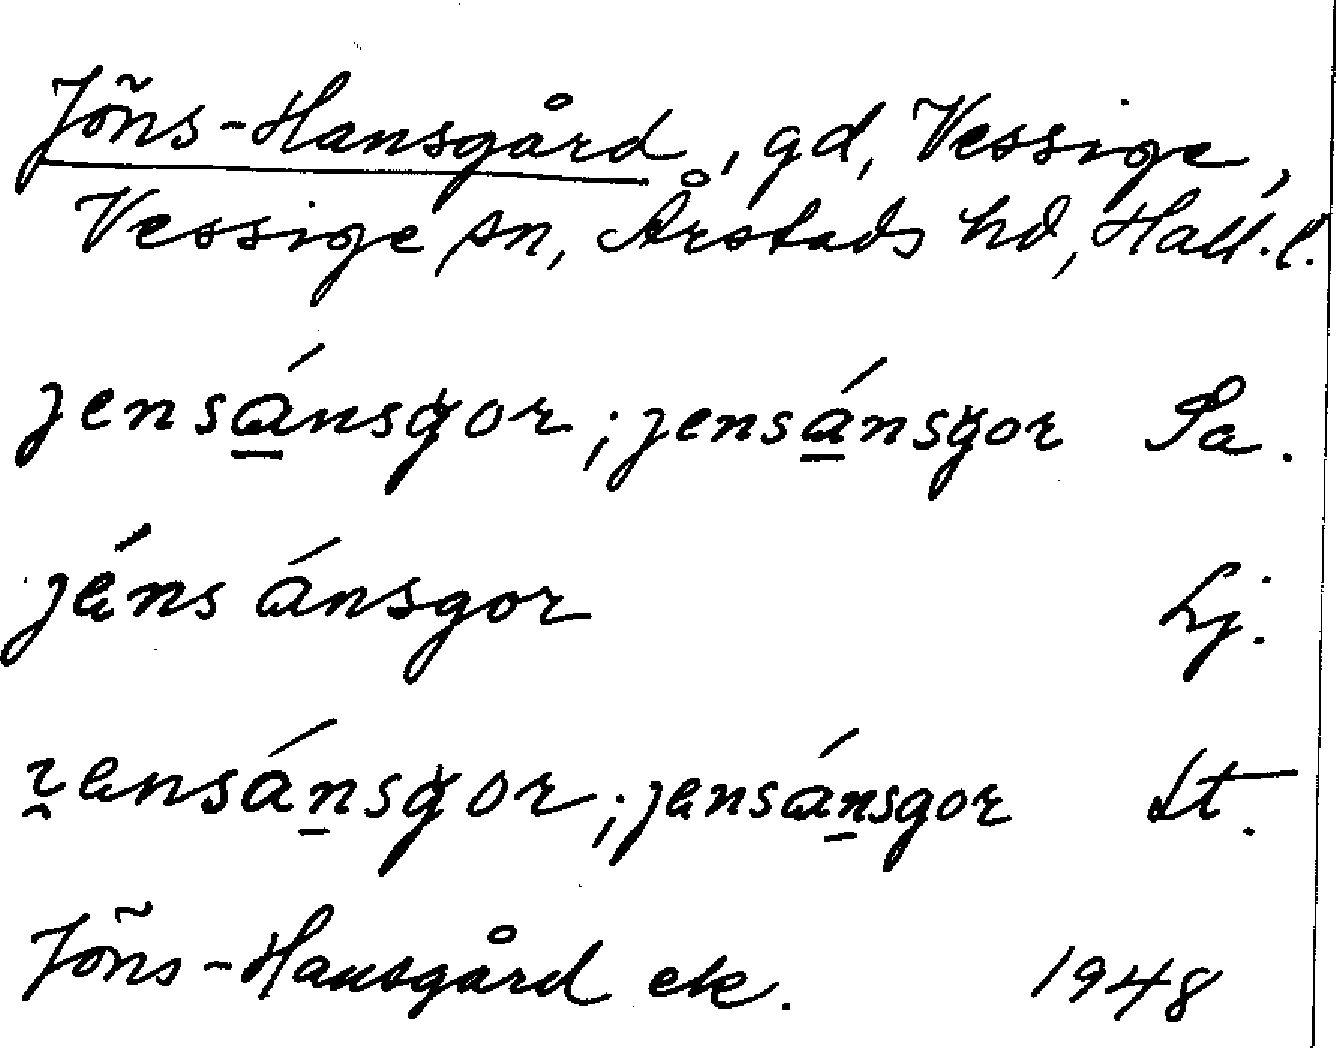 Jöns-Hansgård, gd, Vessige,
Vessige sn, Årstads hd, Hall. l.
jensánsgor; jensánsgor Sa.
jéns ánsgor Lj.
ɀensánsgor; jensánsgor St.
Jöns-Hansgård ek. 1948